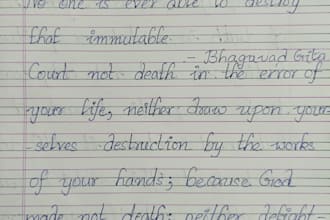 No one is ever able to destroy
that immutable.
- Bhagavad Gita
Court not death in the error of
your life, neither draw upon your-
-selves destruction by the works
of your hands; because God
made not death: neither delight-